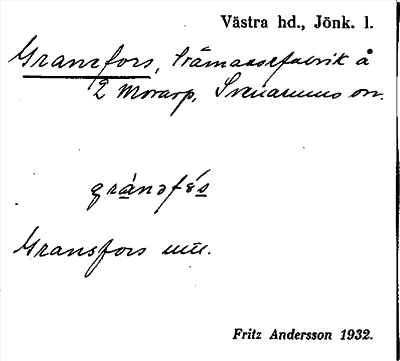 Västra hd., Jönk. l.
Gransfors, trämassefabrik å
2 Morarp, Svenarums sn.
grànəfɛ́s
Gransfors utt.
Fritz Andersson 1932.